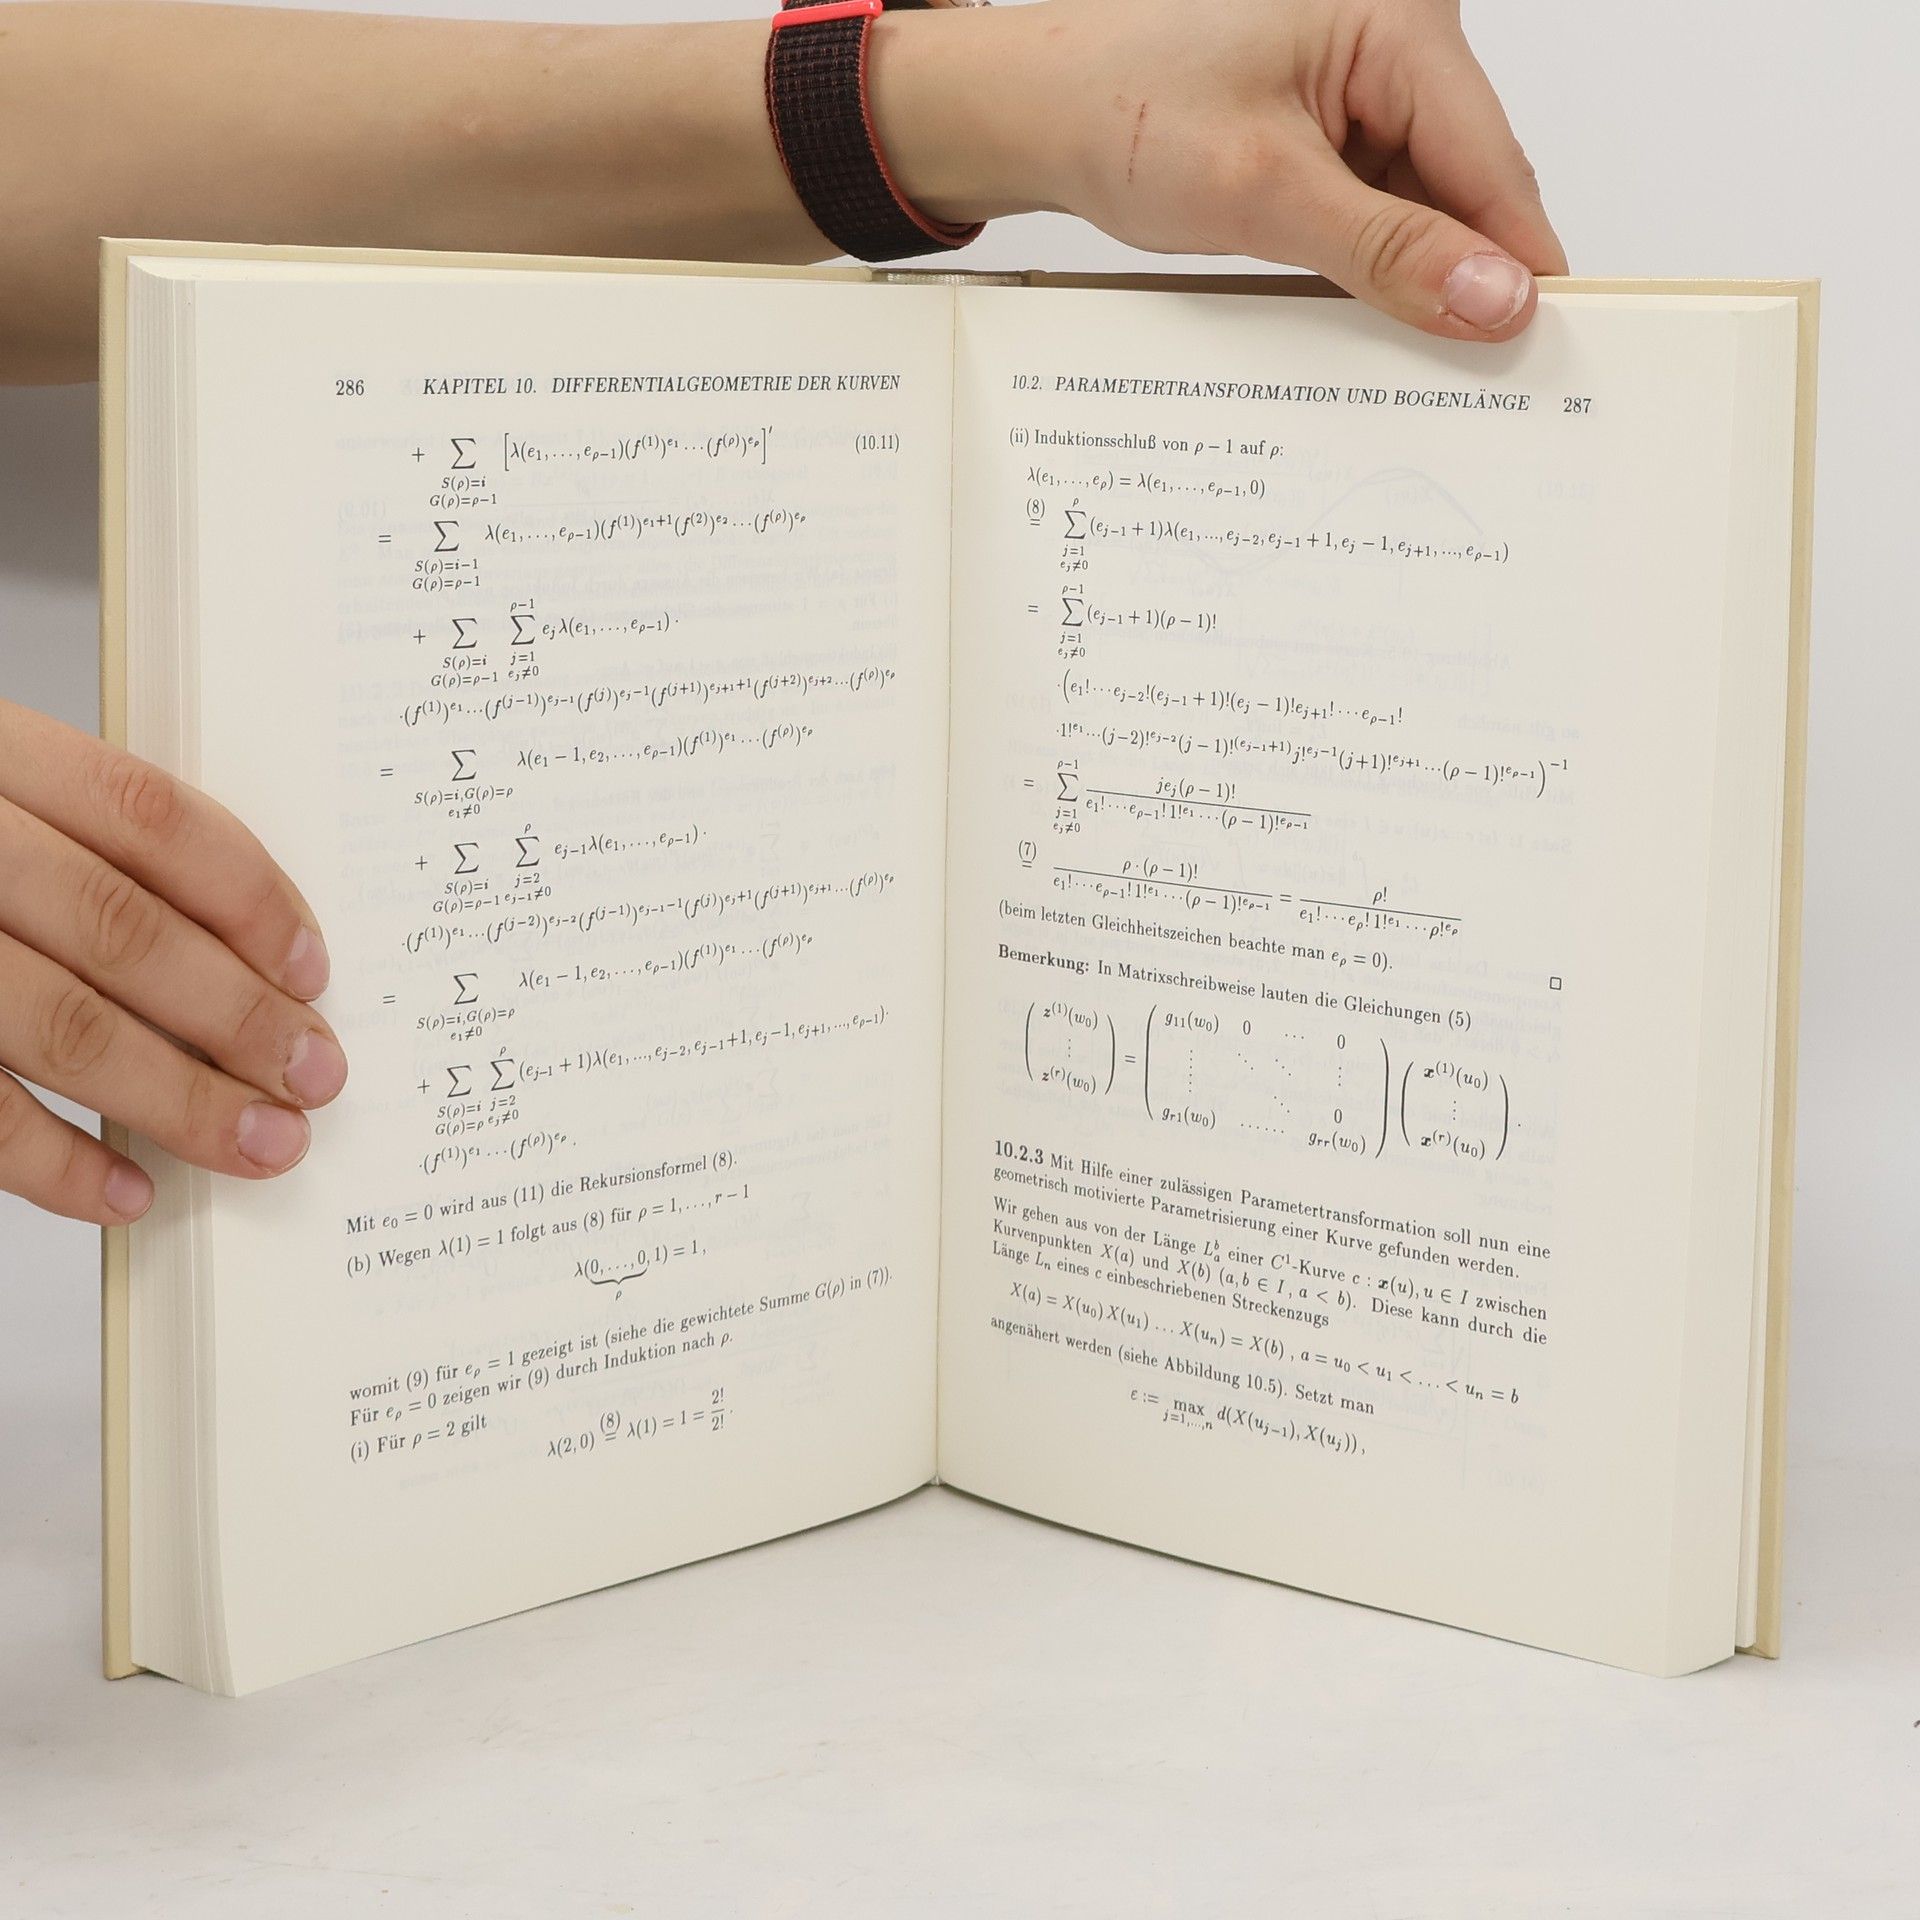 286 KAPITEL 10. DIFFERENTIALGEOMETRIE DER KURVEN
+ ∑_{S(ρ)=i, G(ρ)=ρ−1} [λ(e₁,…,e_{ρ−1})(f^{(1)})^{e₁}…(f^{(ρ)})^{e_ρ}]′ (10.11)
= ∑_{S(ρ)=i−1, G(ρ)=ρ−1} λ(e₁,…,e_{ρ−1})(f^{(1)})^{e₁+1}(f^{(2)})^{e₂}…(f^{(ρ)})^{e_ρ}
+ ∑_{S(ρ)=i, G(ρ)=ρ−1} ∑_{j=1, e_j≠0}^{ρ−1} e_jλ(e₁,…,e_{ρ−1})·
·(f^{(1)})^{e₁}…(f^{(j−1)})^{e_{j−1}}(f^{(j)})^{e_j−1}(f^{(j+1)})^{e_{j+1}+1}(f^{(j+2)})^{e_{j+2}}…(f^{(ρ)})^{e_ρ}
= ∑_{S(ρ)=i,G(ρ)=ρ, e₁≠0} λ(e₁−1,e₂,…,e_{ρ−1})(f^{(1)})^{e₁}…(f^{(ρ)})^{e_ρ}
+ ∑_{S(ρ)=i, G(ρ)=ρ−1} ∑_{j=2, e_{j−1}≠0}^{ρ} e_{j−1}λ(e₁,…,e_{ρ−1})·
·(f^{(1)})^{e₁}…(f^{(j−2)})^{e_{j−2}}(f^{(j−1)})^{e_{j−1}−1}(f^{(j)})^{e_j+1}(f^{(j+1)})^{e_{j+1}}…(f^{(ρ)})^{e_ρ}
= ∑_{S(ρ)=i,G(ρ)=ρ, e₁≠0} λ(e₁−1,e₂,…,e_{ρ−1})(f^{(1)})^{e₁}…(f^{(ρ)})^{e_ρ}
+ ∑_{S(ρ)=i, G(ρ)=ρ} ∑_{j=2, e_j≠0}^{ρ} (e_{j−1}+1)λ(e₁,…,e_{j−2},e_{j−1}+1,e_j−1,e_{j+1},…,e_{ρ−1})·
·(f^{(1)})^{e₁}…(f^{(ρ)})^{e_ρ}.
Mit e₀ = 0 wird aus (11) die Rekursionsformel (8).
(b) Wegen λ(1) = 1 folgt aus (8) für ρ = 1,…,r−1
λ(0,…,0,1) = 1,
ρ
womit (9) für e_ρ = 1 gezeigt ist (siehe die gewichtete Summe G(ρ) in (7)).
Für e_ρ = 0 zeigen wir (9) durch Induktion nach ρ.
(i) Für ρ = 2 gilt
λ(2,0) (8)= λ(1) = 1 = 2!/2!.
10.2. PARAMETERTRANSFORMATION UND BOGENLÄNGE 287
(ii) Induktionsschluß von ρ − 1 auf ρ:
λ(e₁,…,e_ρ) = λ(e₁,…,e_{ρ−1},0)
(8)= ∑_{j=1, e_j≠0}^{ρ} (e_{j−1}+1)λ(e₁,…,e_{j−2},e_{j−1}+1,e_j−1,e_{j+1},…,e_{ρ−1})
= ∑_{j=1, e_j≠0}^{ρ−1} (e_{j−1}+1)(ρ−1)!
·(e₁!⋯e_{j−2}!(e_{j−1}+1)!(e_j−1)!e_{j+1}!⋯e_{ρ−1}!
·1!^{e₁}…(j−2)!^{e_{j−2}}(j−1)!^{(e_{j−1}+1)}j!^{e_j−1}(j+1)!^{e_{j+1}}…(ρ−1)!^{e_{ρ−1}})^{−1}
= ∑_{j=1, e_j≠0}^{ρ−1} je_j(ρ−1)! / e₁!⋯e_{ρ−1}!1!^{e₁}⋯(ρ−1)!^{e_{ρ−1}}
(7)= ρ·(ρ−1)! / e₁!⋯e_{ρ−1}!1!^{e₁}⋯(ρ−1)!^{e_{ρ−1}} = ρ! / e₁!⋯e_ρ!1!^{e₁}⋯ρ!^{e_ρ}
(beim letzten Gleichheitszeichen beachte man e_ρ = 0). □
Bemerkung: In Matrixschreibweise lauten die Gleichungen (5)
( z^{(1)}(w₀) ⋮ z^{(r)}(w₀) ) = ( g₁₁(w₀) 0 … 0 ⋮ ⋱ ⋱ ⋮ ⋮ ⋱ 0 g_{r1}(w₀) …… g_{rr}(w₀) ) ( x^{(1)}(u₀) ⋮ x^{(r)}(u₀) ).
10.2.3 Mit Hilfe einer zulässigen Parametertransformation soll nun eine
geometrisch motivierte Parametrisierung einer Kurve gefunden werden.
Wir gehen aus von der Länge L_a^b einer C¹-Kurve c : x(u), u ∈ I zwischen
Kurvenpunkten X(a) und X(b) (a,b ∈ I, a < b). Diese kann durch die
Länge L_n eines c einbeschriebenen Streckenzugs
X(a) = X(u₀)X(u₁)…X(u_n) = X(b), a = u₀ < u₁ < … < u_n = b
angenähert werden (siehe Abbildung 10.5). Setzt man
ε := max_{j=1,…,n} d(X(u_{j−1}),X(u_j)),